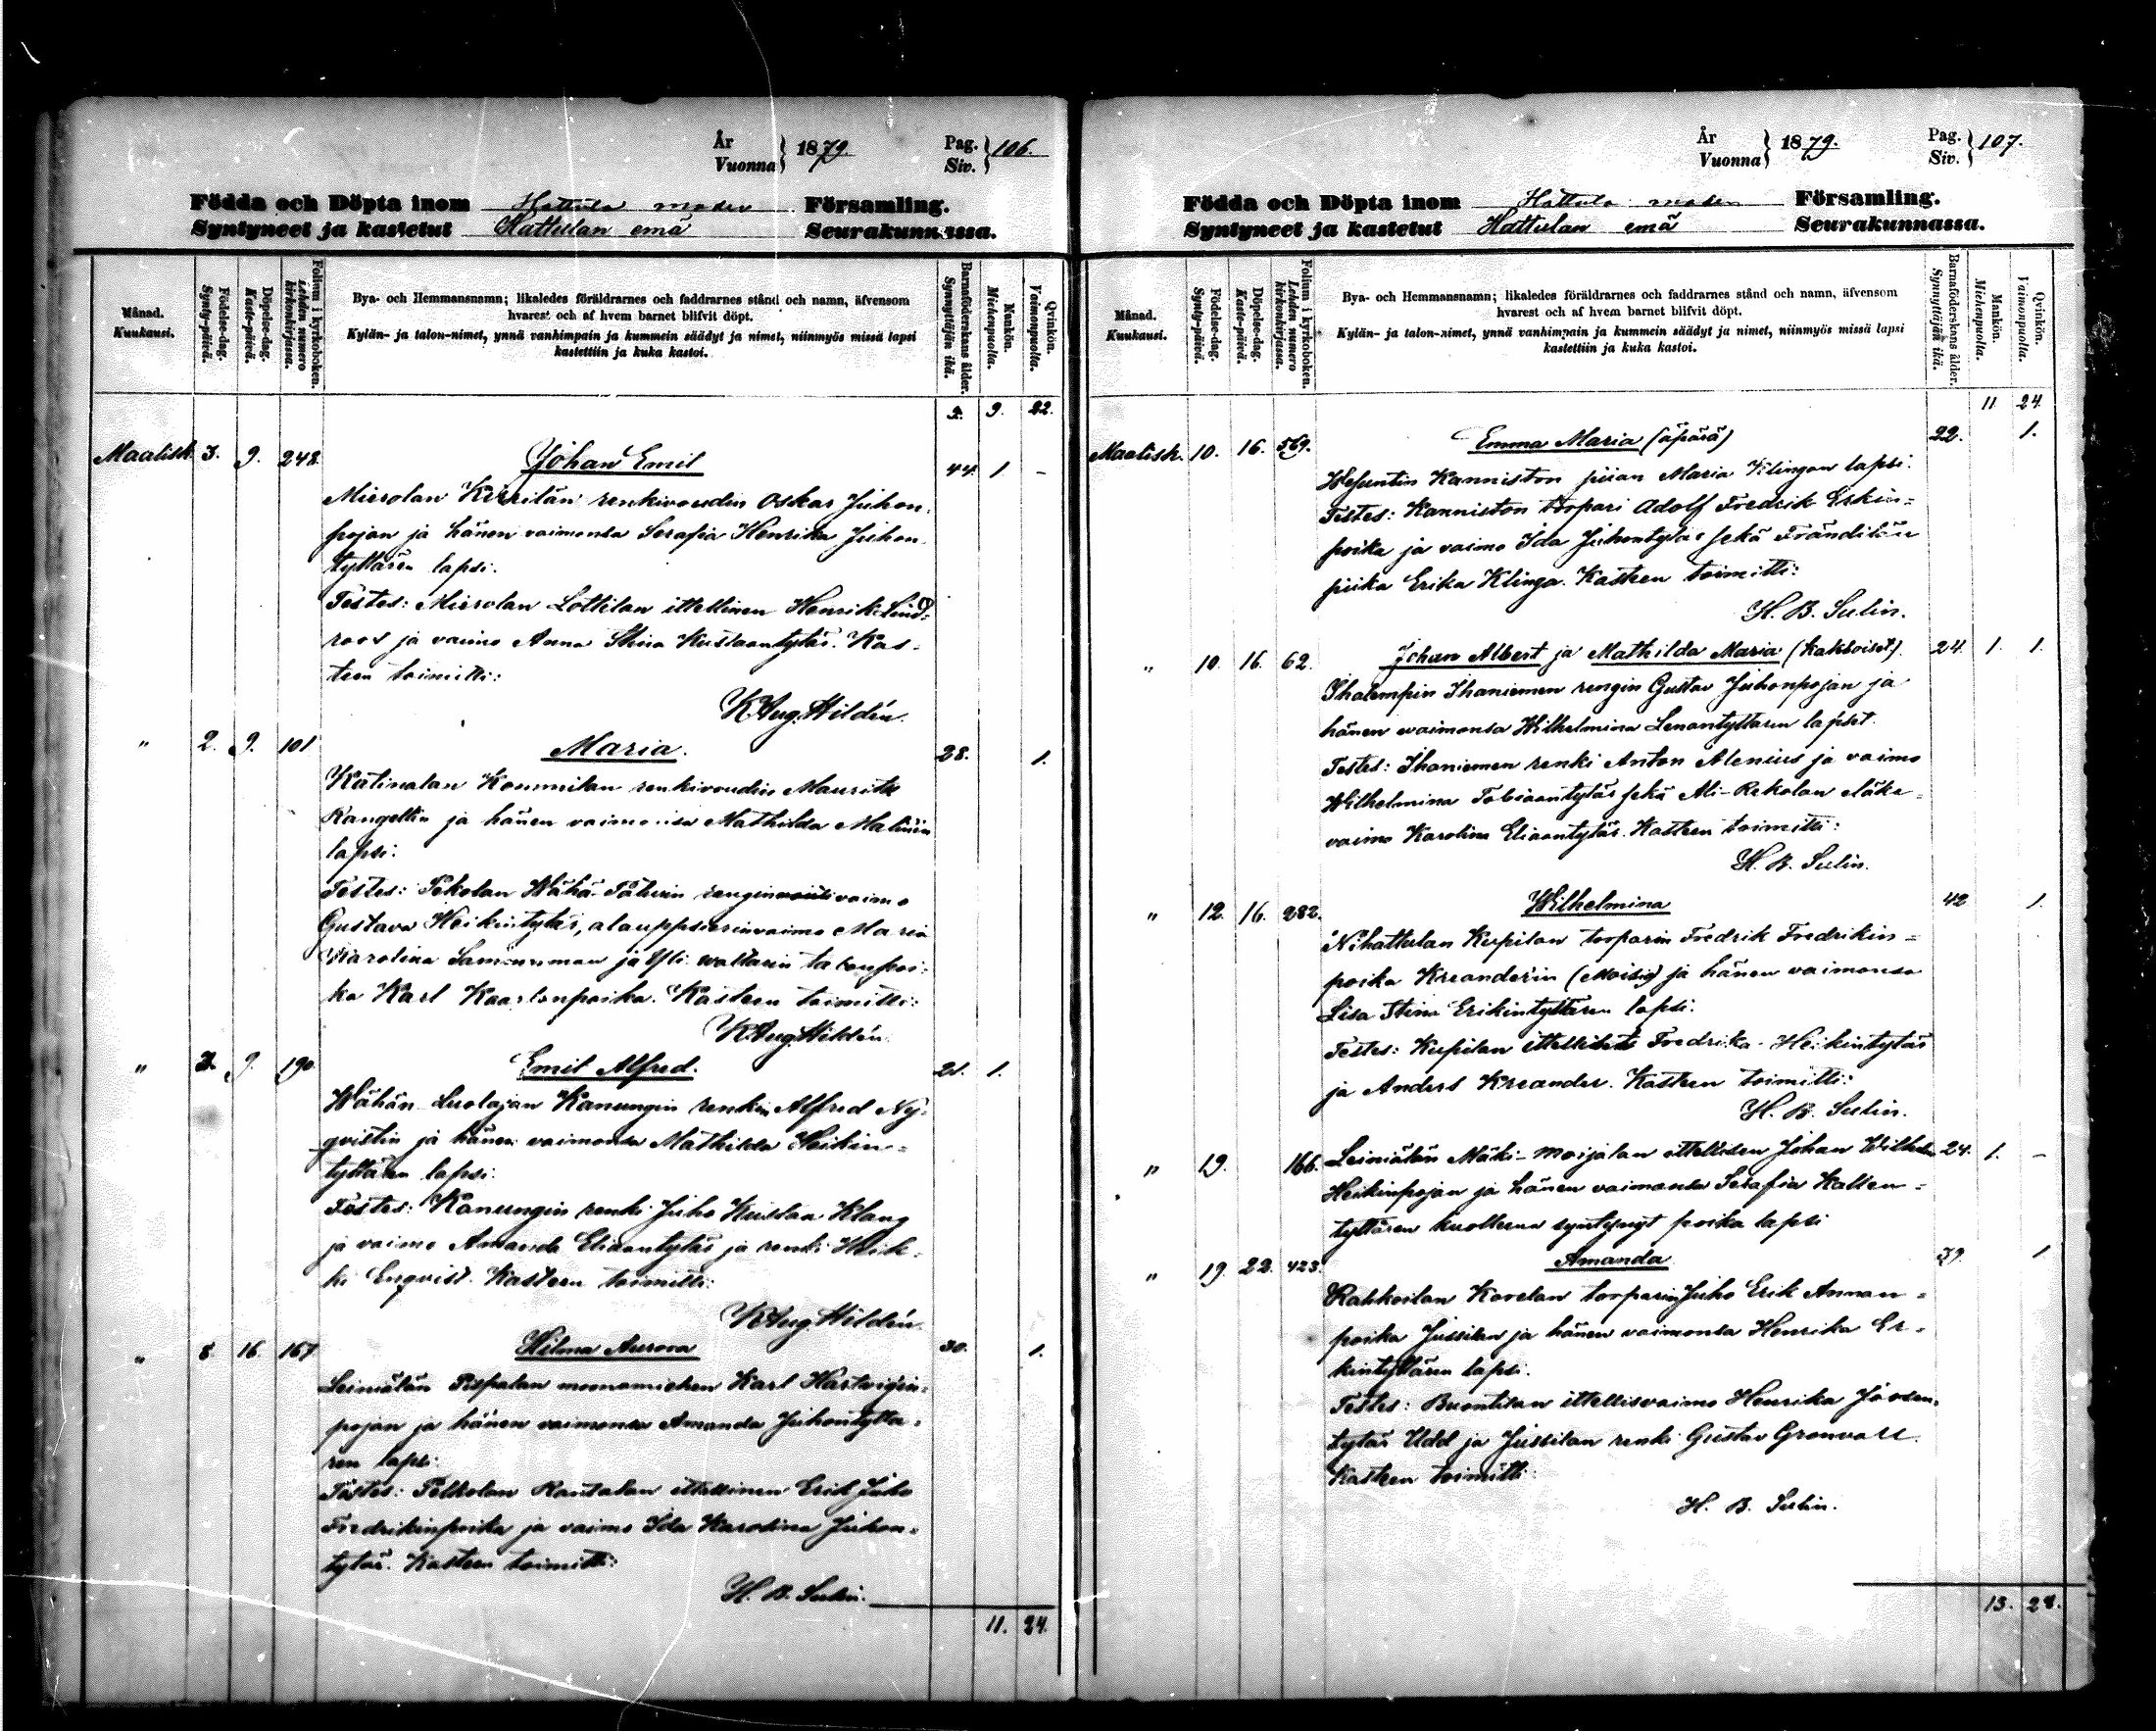 År
Vuonna } 1879.
Pag.
Siv. } 106.
Födda och Döpta inom Hattula moder Församling.
Syntyneet ja kastetut Hattulan emä Seurakunnassa.
Månad.
Kuukausi.
Födelse-dag.
Synty-päivä.
Döpelse-dag.
Kaste-päivä.
Folium i kyrkoboken.
Lehden numero kirkonkirjassa.
Bya- och Hemmansnamn; likaledes föräldrarnes och faddrarnes stånd och namn, äfvensom
hvarest och af hvem barnet blifvit döpt.
Kylän- ja talon-nimet, ynnä vanhimpain ja kummein säädyt ja nimet, niinmyös missä lapsi
kastettiin ja kuka kastoi.
Barnaföderskans ålder.
Synnyttäjän ikä.
Mankön.
Miehenpuolta.
Qvinkön.
Vaimonpuolta.
9. 22.
Maalisk. 3. 9. 248. Johan Emil 44. 1 -
Mierolan Kirrilän renkivoudin Oskar Juhon
pojan ja hänen vaimonsa Serafia Henrika Juhon
tyttären lapsi.
Testes: Mierolan Lottilan ittellinen Henrik Lind-
roos ja vaimo Anna Stina Kustaantytär. Kas-
teen toimitti:
K Aug. Hildén.
" 2. 9. 101 Maria. 28. 1.
Katinalan Kounnilan renkivoudin Maurits
Rangellin ja hänen vaimonsa Mathilda Malinin
lapsi:
Testes: Pekolan Wähä-Päturin renginvaimo
Gustava Heikintytär, alauppsierinvaimo Maria
Karolina Sammunman ja Yli wallarin talonpoi-
ka Karl Kaarlonpoika. Kasteen toimitti:
K Aug. Hildén.
" 3. 9. 190. Emil Alfred. 21. 1.
Wähän Luolajan Kanungin renkin Alfred Ny-
qvistin ja hänen vaimonsa Mathilda Heikin-
tyttären lapsi:
Testes: Kanungin renki Juho Kustaa Klang
ja vaimo Amanda Eliaantytär ja renki Heik-
ki Enqvist. Kasteen toimitti:
K Aug. Hildén.
" 8. 16. 167 Hilma Aurora 30. 1.
Leiniälän Pispalan muonamiehen Karl Hartvigin-
pojan ja hänen vaimonsa Amanda Juhontyttä-
ren lapsi:
Testes: Pelkolan Rantalan ittellinen Erik Juho
Fredrikinpoika ja vaimo Ida Karolina Juhon-
tytär. Kasteen toimitti:
H. B. Sulin.
11. 24.
År
Vuonna } 1879.
Pag.
Siv. } 107.
Födda och Döpta inom Hattula moder Församling.
Syntyneet ja kastetut Hattulan emä Seurakunnassa.
Månad.
Kuukausi.
Födelse-dag.
Synty-päivä.
Döpelse-dag.
Kaste-päivä.
Folium i kyrkoboken.
Lehden numero kirkonkirjassa.
Bya- och Hemmansnamn; likaledes föräldrarnes och faddrarnes stånd och namn, äfvensom
hvarest och af hvem barnet blifvit döpt.
Kylän- ja talon-nimet, ynnä vanhimpain ja kummein säädyt ja nimet, niinmyös missä lapsi
kastettiin ja kuka kastoi.
Barnaföderskans ålder.
Synnyttäjän ikä.
Mankön.
Miehenpuolta.
Qvinkön.
Vaimonpuolta.
11 24.
Maalisk. 10. 16. 569. Emma Maria (äpärä) 22. 1.
Wesuntin Kanniston piian Maria Klingan lapsi.
Testes: Kanniston torpari Adolf Fredrik Erkin-
poika ja vaimo Ida Juhontytär sekä Frändilän
piika Erika Klinga. Kasteen toimitti:
H. B. Sulin.
" 10. 16. 62. Johan Albert ja Mathilda Maria (kaksoiset) 24. 1. 1.
Ihalempin Ihaniemen rengin Gustav Juhonpojan ja
hänen vaimonsa Wilhelmina Lenantyttären lapset.
Testes: Ihaniemen renki Anton Alenius ja vaimo
Wilhelmina Tobiaantytär sekä Ali-Rekolan eläke-
vaimo Karolina Eliaantytär. Kasteen toimitti:
H. B. Sulin.
" 12. 16. 282. Wilhelmina 42 1.
Nihattulan Kupilan torparin Fredrik Fredrikin-
poika Kreanderin (Moisio) ja hänen vaimonsa
Lisa Stina Erikintyttären lapsi.
Testes: Kupilan ittelliset Fredrika Heikintytär
ja Anders Kreander. Kasteen toimitti:
H. B. Sulin.
" 19. 166. Leiniälän Mäki-Moijalan ittellisen Johan Wilhelm 24. 1. -
Heikinpojan ja hänen vaimonsa Serafia Kallen-
tyttären kuolleena syntynyt poika lapsi
" 19. 22. 423. Amanda 39. 1
Rahkoilan Kovelan torparin Juho Erik Annan-
poika Jussilan ja hänen vaimonsa Henrika Er-
kintyttären lapsi.
Testes: Buontilan ittellisvaimo Henrika Joosen-
tytär Udd ja Jussilan renki Gustav Gronvall.
Kasteen toimitti:
H. B. Sulin.
13. 28.